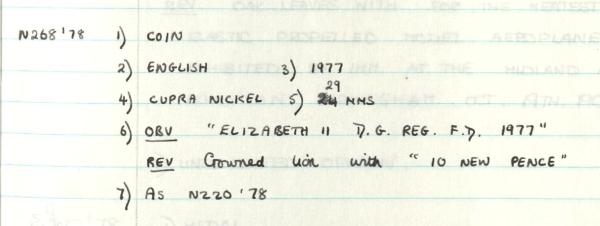 N268'78 1) COIN
2) ENGLISH 3) 1977
4) CUPRA NICKEL 5) 29 MMS
6) OBV "ELIZABETH II D.G. REG. F.D. 1977"
REV Crowned lion with "10 NEW PENCE"
7) AS N220'78